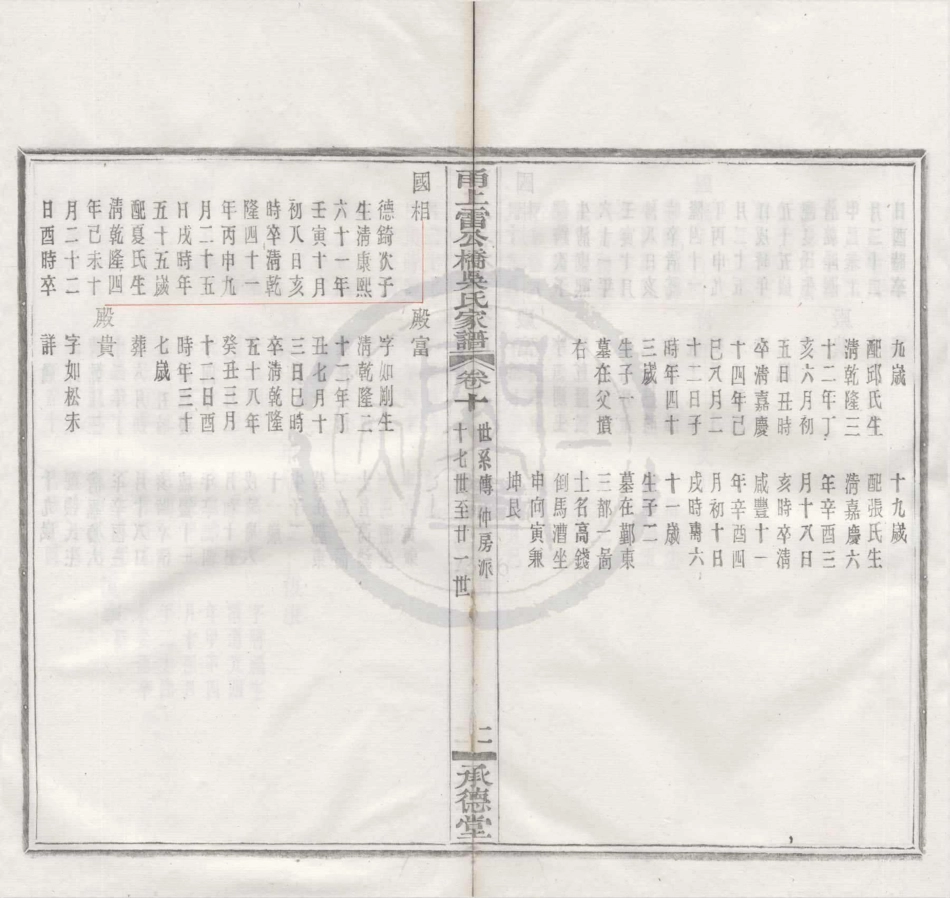 九歲
配邱氏生
清乾隆三
十二年丁
亥六月初
五日丑時
卒清嘉慶
十四年己
巳八月二
十二日子
時年四十
三歲
生子一
墓在父墳
右
十九歲
配張氏生
清嘉慶六
年辛酉三
月十八日
亥時卒清
咸豐十一
年辛酉四
月初十日
戌時壽六
十一歲
生子二
墓在鄞東
三都一啚
土名高錢
倒馬漕坐
申向寅兼
坤艮
甬上雷公橋吳氏家譜
卷十
世系傳仲房派
十七世至廿一世
二
承德堂
國相
德錡次子
生清康熙
六十一年
壬寅十月
初八日亥
時卒清乾
隆四十一
年丙申九
月二十五
日戌時年
五十五歲
配夏氏生
清乾隆四
年己未十
月二十二
日酉時卒
殿富
字如剛生
清乾隆二
十二年丁
丑七月十
三日巳時
卒清乾隆
五十八年
癸丑三月
十二日酉
時年三十
七歲
葬
殿貴
字如松未
詳